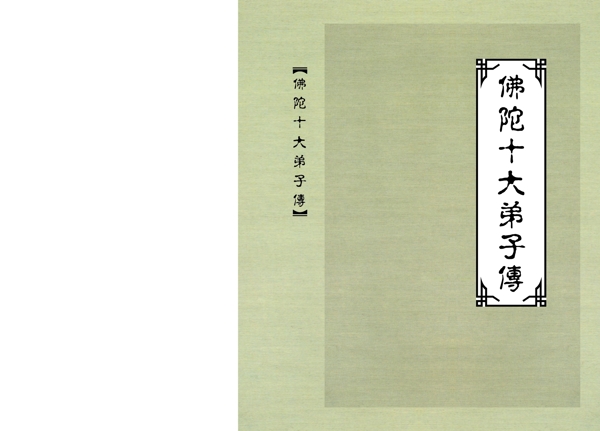 佛陀十大弟子傳
【佛陀十大弟子傳】